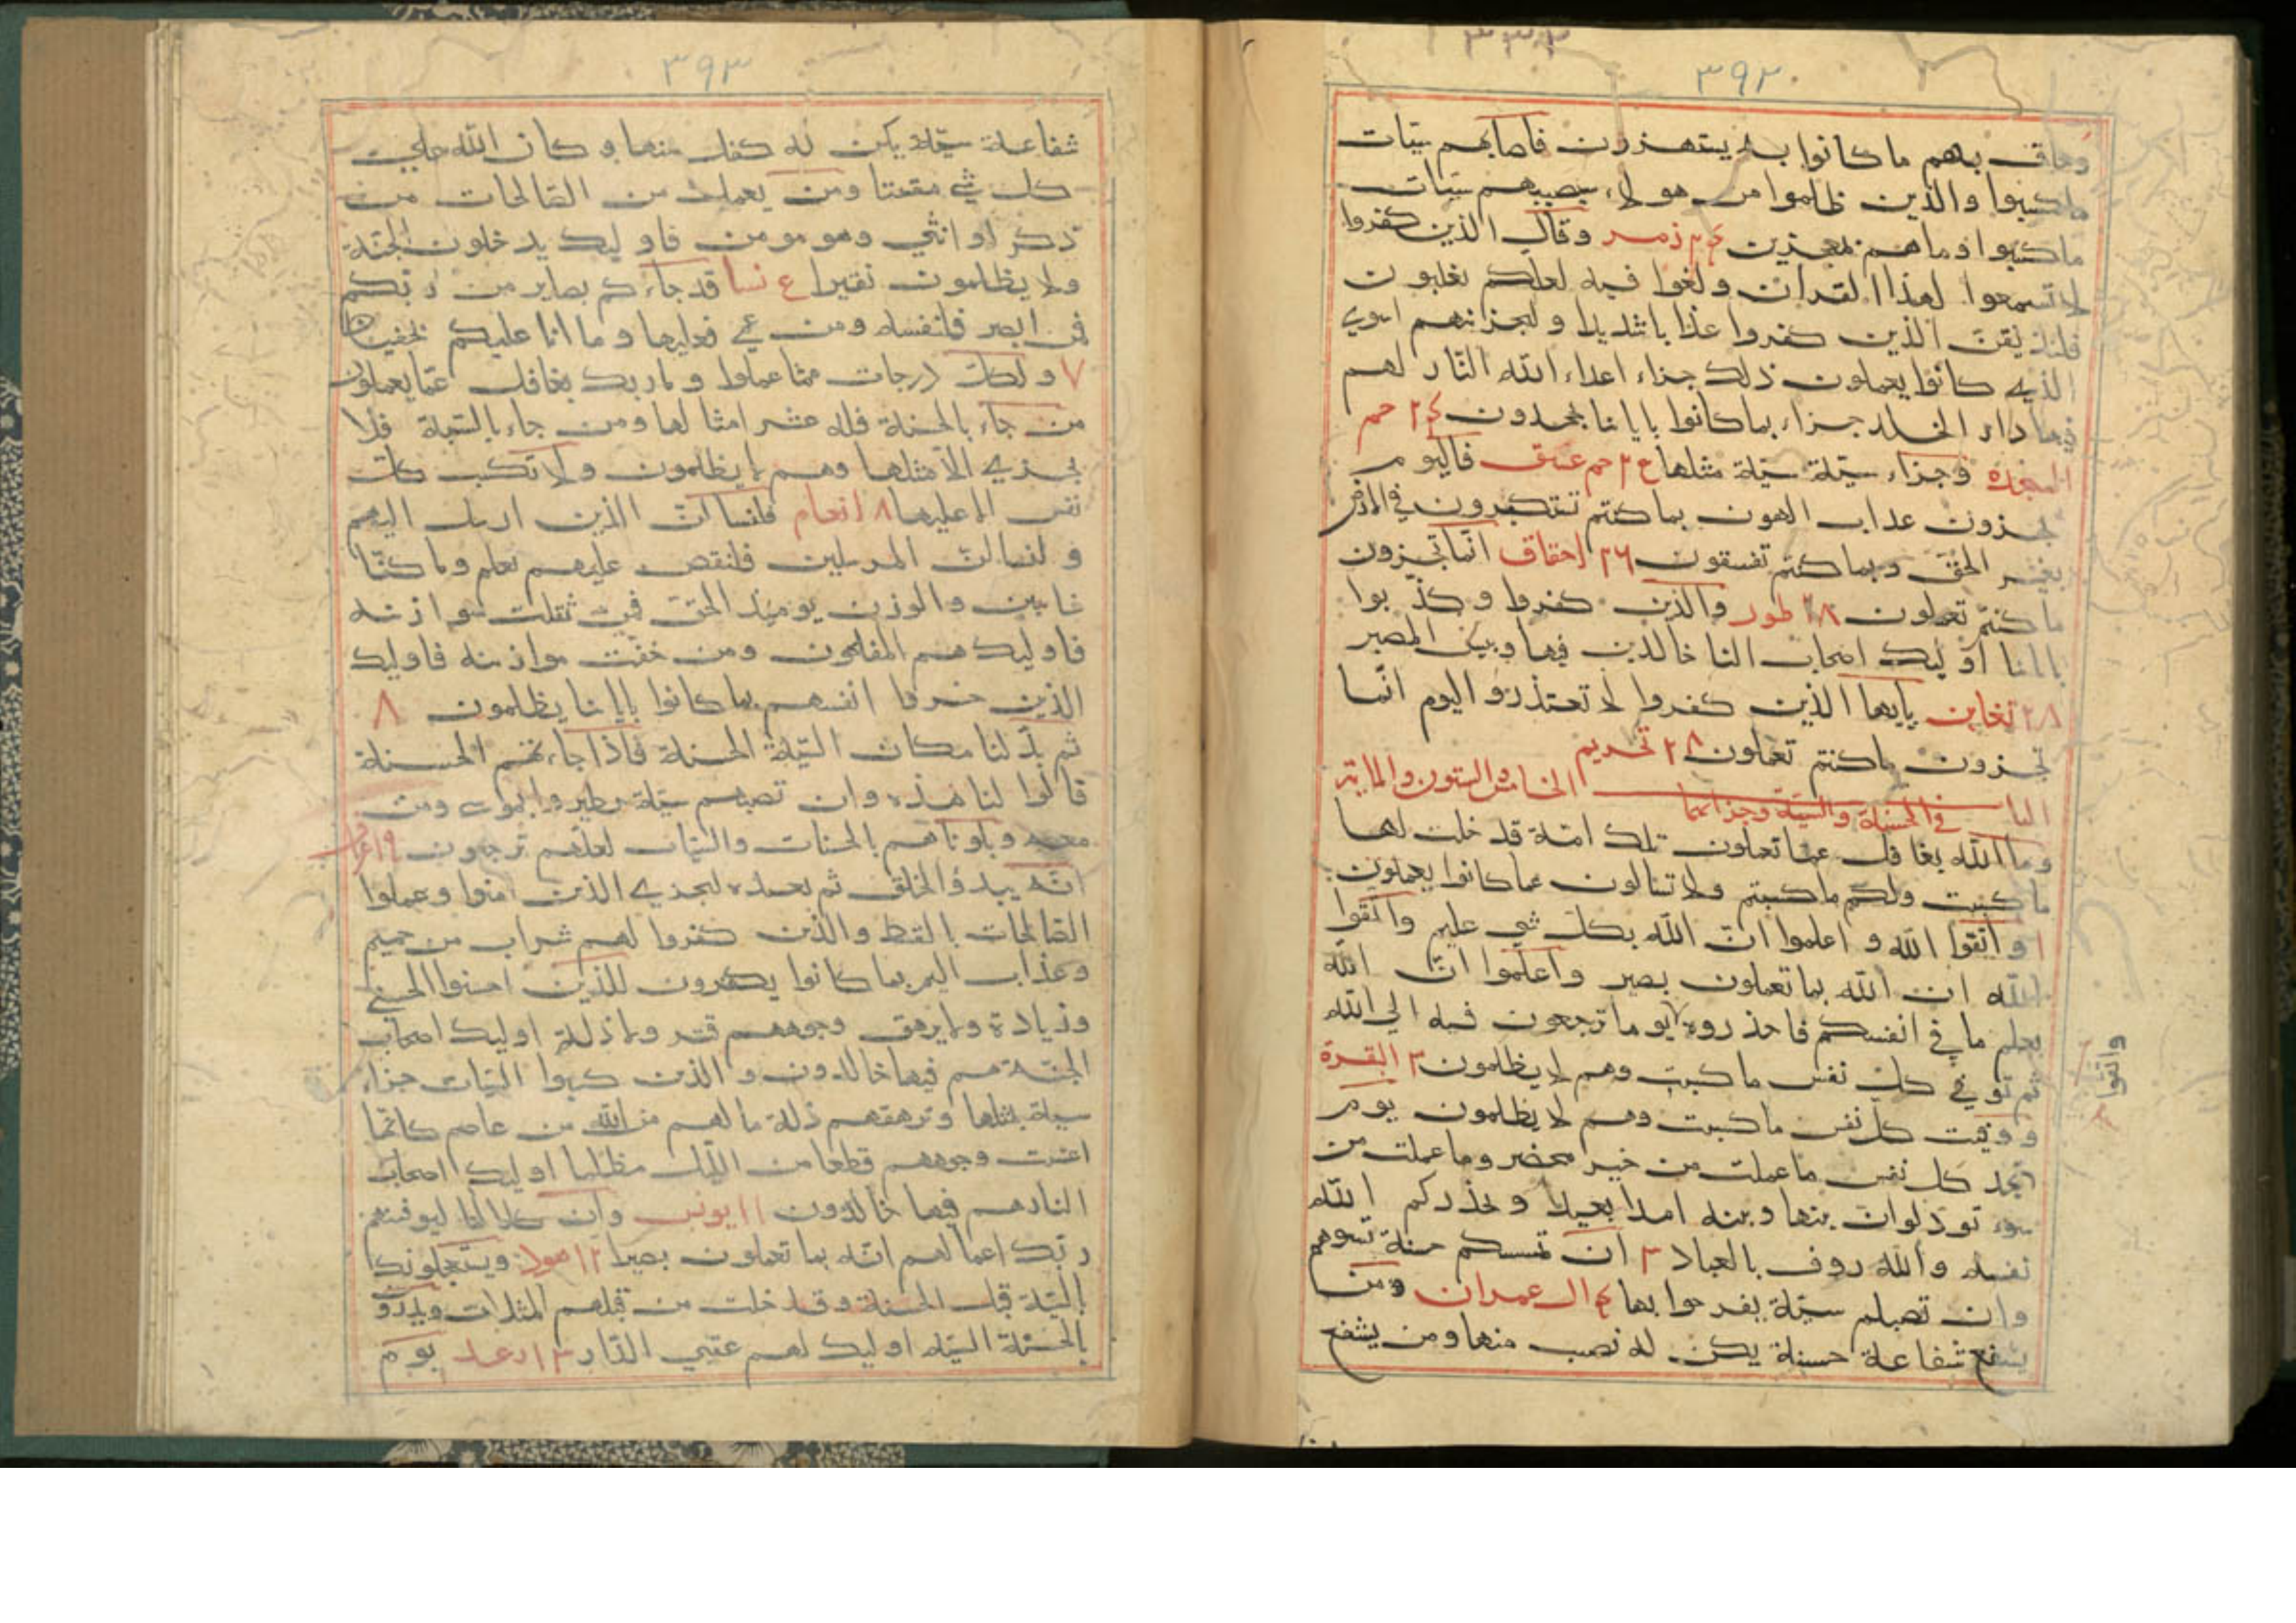 ٣٩٢
وحاق بهم ما كانوا به يستهزون فاصابهم سيّات
ما كسبوا والذين ظلموا من هولاء سيصيبهم سيّات
ما كسبوا وما هم بمعجزين ٢٤ زمر وقال الذين كفروا
لا تسمعوا لهذا القران ولغوا فيه لعلكم تغلبون
فلنذيقن الذين كفروا عذابا شديدا ولنجزينهم اسوي
الذي كانوا يعملون ذلك جزاء اعداء الله النّار لهم
فيها دار الخلد جزاء بما كانوا باياتنا يجحدون ٢٤ حم
السجده وجزاء سيّئة سيّئة مثلها ع٢ حم عسق فاليوم
تجزون عذاب الهون بما كنتم تستكبرون في الارض
بغير الحقّ وبما كنتم تفسقون ٢٦ احقاف انّما تجزون
ما كنتم تعملون ٢٨ طور والذين كفروا وكذّبوا
باياتنا اوليك اصحاب النار خالدين فيها وبيس المصير
٢٨ تغابن يايها الذين كفروا لا تعتذروا اليوم انّما
تجزون ما كنتم تعملون ٢٨ تحريم
الباب الخامس والستون والماية
في الحسنة والسيّئة وجزائهما
وما الله بغافل عما تعملون تلك امّة قد خلت لها
ما كسبت ولكم ما كسبتم ولا تسالون عما كانوا يعملون
١ واتقوا الله واعلموا انّ الله بكل شي عليم واتقوا
الله ان الله بما تعملون بصير واعلموا انّ الله
يعلم ما في انفسكم فاحذروه يوما ترجعون فيه الي الله
واتقوا
ثم توفي كل نفس ما كسبت وهم لا يظلمون ٣ البقرة
ووفيت كل نفس ما كسبت وهم لا يظلمون يوم
تجد كل نفس ما عملت من خير محضرا وما عملت من
سوء تودّ لو ان بينها وبينه امدا بعيدا ويحذركم الله
نفسه والله روف بالعباد ٣ ان تمسسكم حسنة تسوهم
وان تصبكم سيّئة يفرحوا بها ع ال عمران ومن
يشفع شفاعة حسنة يكن له نصيب منها ومن يشفع
٣٩٣
شفاعة سيّئة يكن له كفل منها وكان الله علي
كل شي مقيتا ومن يعمل من الصّالحات من
ذكر او انثي وهو مومن فاوليك يدخلون الجنّة
ولا يظلمون نقيرا ع نسا قد جاءكم بصاير من ربّكم
فمن ابصر فلنفسه ومن عمي فعليها وما انا عليكم بحفيظ
٧ ولكلّ درجات ممّا عملوا وما ربك بغافل عمّا يعملون
من جاء بالحسنة فله عشر امثالها ومن جاء بالسّيئة فلا
يجزي الّا مثلها وهم لا يظلمون ولا تكسب كلّ
نفس الا عليها ٨ انعام فلنسالنّ الذين ارسل اليهم
ولنسالنّ المرسلين فلنقصن عليهم بعلم وما كنّا
غايبين والوزن يوميذ الحقّ فمن ثقلت موازينه
فاوليك هم المفلحون ومن خفّت موازينه فاوليك
الذين خسروا انفسهم بما كانوا باياتنا يظلمون ٨
ثم بدّلنا مكان السّيئة الحسنة فاذا جاءتهم الحسنة
قالوا لنا هذه وان تصبهم سيّئة يطيروا بموسي ومن
معه وبلوناهم بالحسنات والسّيات لعلّهم يرجعون ٩ اعراف
انّه يبدؤ الخلق ثم يعيده ليجزي الذين امنوا وعملوا
الصّالحات بالقسط والذين كفروا لهم شراب من حميم
وعذاب اليم بما كانوا يكفرون للذين احسنوا الحسني
وزيادة ولا يرهق وجوههم قتر ولا ذلة اوليك اصحاب
الجنّة هم فيها خالدون والذين كسبوا السّيات جزاء
سيئة بمثلها وترهقهم ذلة ما لهم من الله من عاصم كانّما
اغشيت وجوههم قطعا من اللّيل مظلما اوليك اصحاب
النار هم فيها خالدون ١١ يونس وان كلا لمّا ليوفينهم
ربّك اعمالهم انّه بما تعملون بصير ١٢ هود ويستعجلونك
بالسّيئة قبل الحسنة وقد خلت من قبلهم المثلات ويدرؤن
بالحسنة السّيئه اوليك لهم عقبي الدّار ١٣ رعد يوم